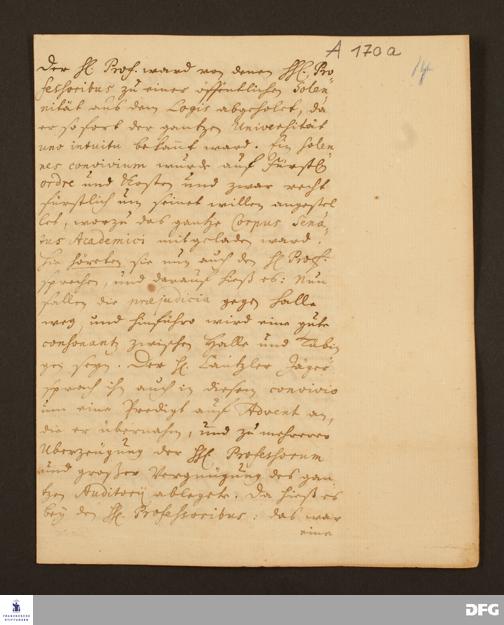 A 170a
14
Der H. Prof. ward von denen HH. Pro-
fessoribus zu einer öffentlichen Solen-
nität aus dem Logis abgeholet, da
er so fort der gantzen Universität
uno intuitu bekannt ward. Ein solen-
nes convivium wurde auf Fürstl.
ordre und Kosten und zwar recht
fürstlich um seinet willen angestel-
let, worzu das gantze Corpus Sena-
tus Academici mitgeladen ward.
Hie höreten sie nun auch den H. Prof.
sprechen, und darauf hieß es: Nun
fallen die praejudicia gegen Halle
weg, und hinführo wird eine gute
consonantz zwischen Halle und Tübin-
gen seyn. Der H. Cantzler Jäger
sprach ihn auch in diesem convivio
um eine Predigt auf Advent an,
die er übernahm, und zu mehrerer
Uberzeugung der HH. Professorum
und großer Vergnügung des gan-
tzen Auditorij ablegete. Da hieß es
bey den HH. Professoribus: das war
eine
FRANCKESCHE
STIFTUNGEN
DFG